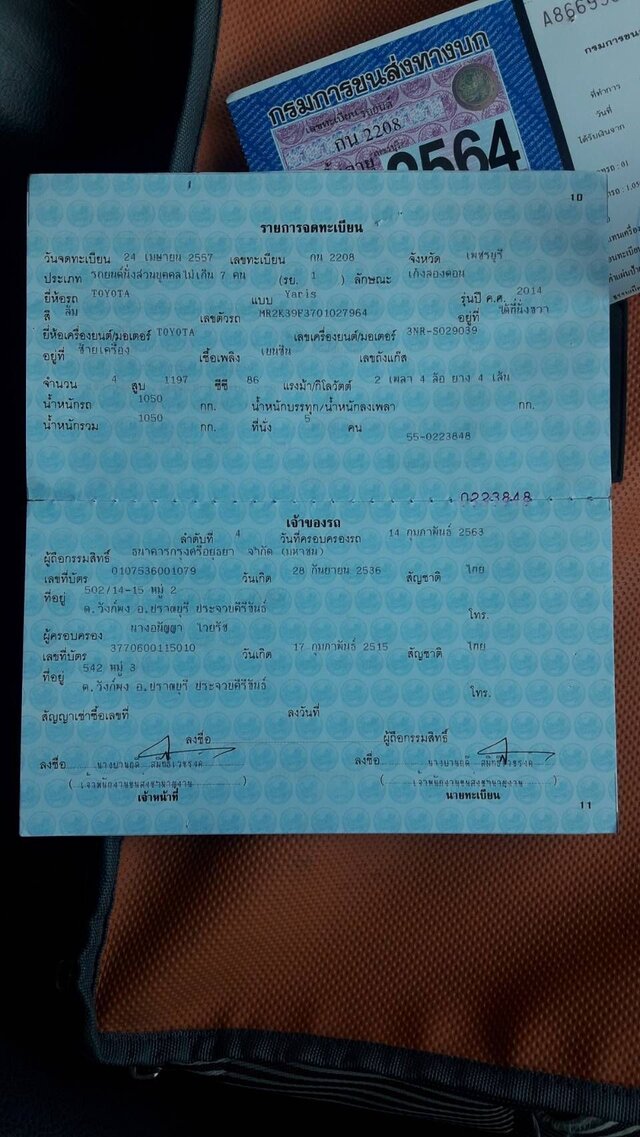 A8669
กรมการขนส่งทางบก
กรมการขน
เลขทะเบียน รถยนต์
กน 2208
2564
ที่ทำการ
วันที่
ได้รับเงินจาก
10
รายการจดทะเบียน
วันจดทะเบียน 24 เมษายน 2557 เลขทะเบียน กน 2208 จังหวัด เพชรบุรี
ประเภท รถยนต์นั่งส่วนบุคคลไม่เกิน 7 คน (รย. 1 ) ลักษณะ เก๋งสองตอน
ยี่ห้อรถ TOYOTA แบบ Yaris รุ่นปี ค.ศ. 2014
สี ส้ม เลขตัวรถ MR2K39F3701027964 อยู่ที่ ใต้ที่นั่งขวา
ยี่ห้อเครื่องยนต์/มอเตอร์ TOYOTA เลขเครื่องยนต์/มอเตอร์ 3NR-S029039
อยู่ที่ ซ้ายเครื่อง เชื้อเพลิง เบนซิน เลขถังแก๊ส
จำนวน 4 สูบ 1197 ซีซี 86 แรงม้า/กิโลวัตต์ 2 เพลา 4 ล้อ ยาง 4 เส้น
น้ำหนักรถ 1050 กก. น้ำหนักบรรทุก/น้ำหนักลงเพลา กก.
น้ำหนักรวม 1050 กก. ที่นั่ง 5 คน
55-0223848
0223848
เจ้าของรถ
ลำดับที่ 4 วันที่ครอบครองรถ 14 กุมภาพันธ์ 2563
ผู้ถือกรรมสิทธิ์ ธนาคารกรุงศรีอยุธยา จำกัด (มหาชน)
เลขที่บัตร 0107536001079 วันเกิด 28 กันยายน 2536 สัญชาติ ไทย
ที่อยู่ 502/14-15 หมู่ 2
ต.วังก์พง อ.ปราณบุรี ประจวบคีรีขันธ์ โทร.
ผู้ครอบครอง นางอนัญญา ไวยรัช
เลขที่บัตร 3770600115010 วันเกิด 17 กุมภาพันธ์ 2515 สัญชาติ ไทย
ที่อยู่ 542 หมู่ 3
ต.วังก์พง อ.ปราณบุรี ประจวบคีรีขันธ์ โทร.
สัญญาเช่าซื้อเลขที่ ลงวันที่
ลงชื่อ ผู้ถือกรรมสิทธิ์
ลงชื่อ ลงชื่อ
( เจ้าพนักงานขนส่งชำนาญงาน ) ( เจ้าพนักงานขนส่งชำนาญงาน )
เจ้าหน้าที่ นายทะเบียน
11